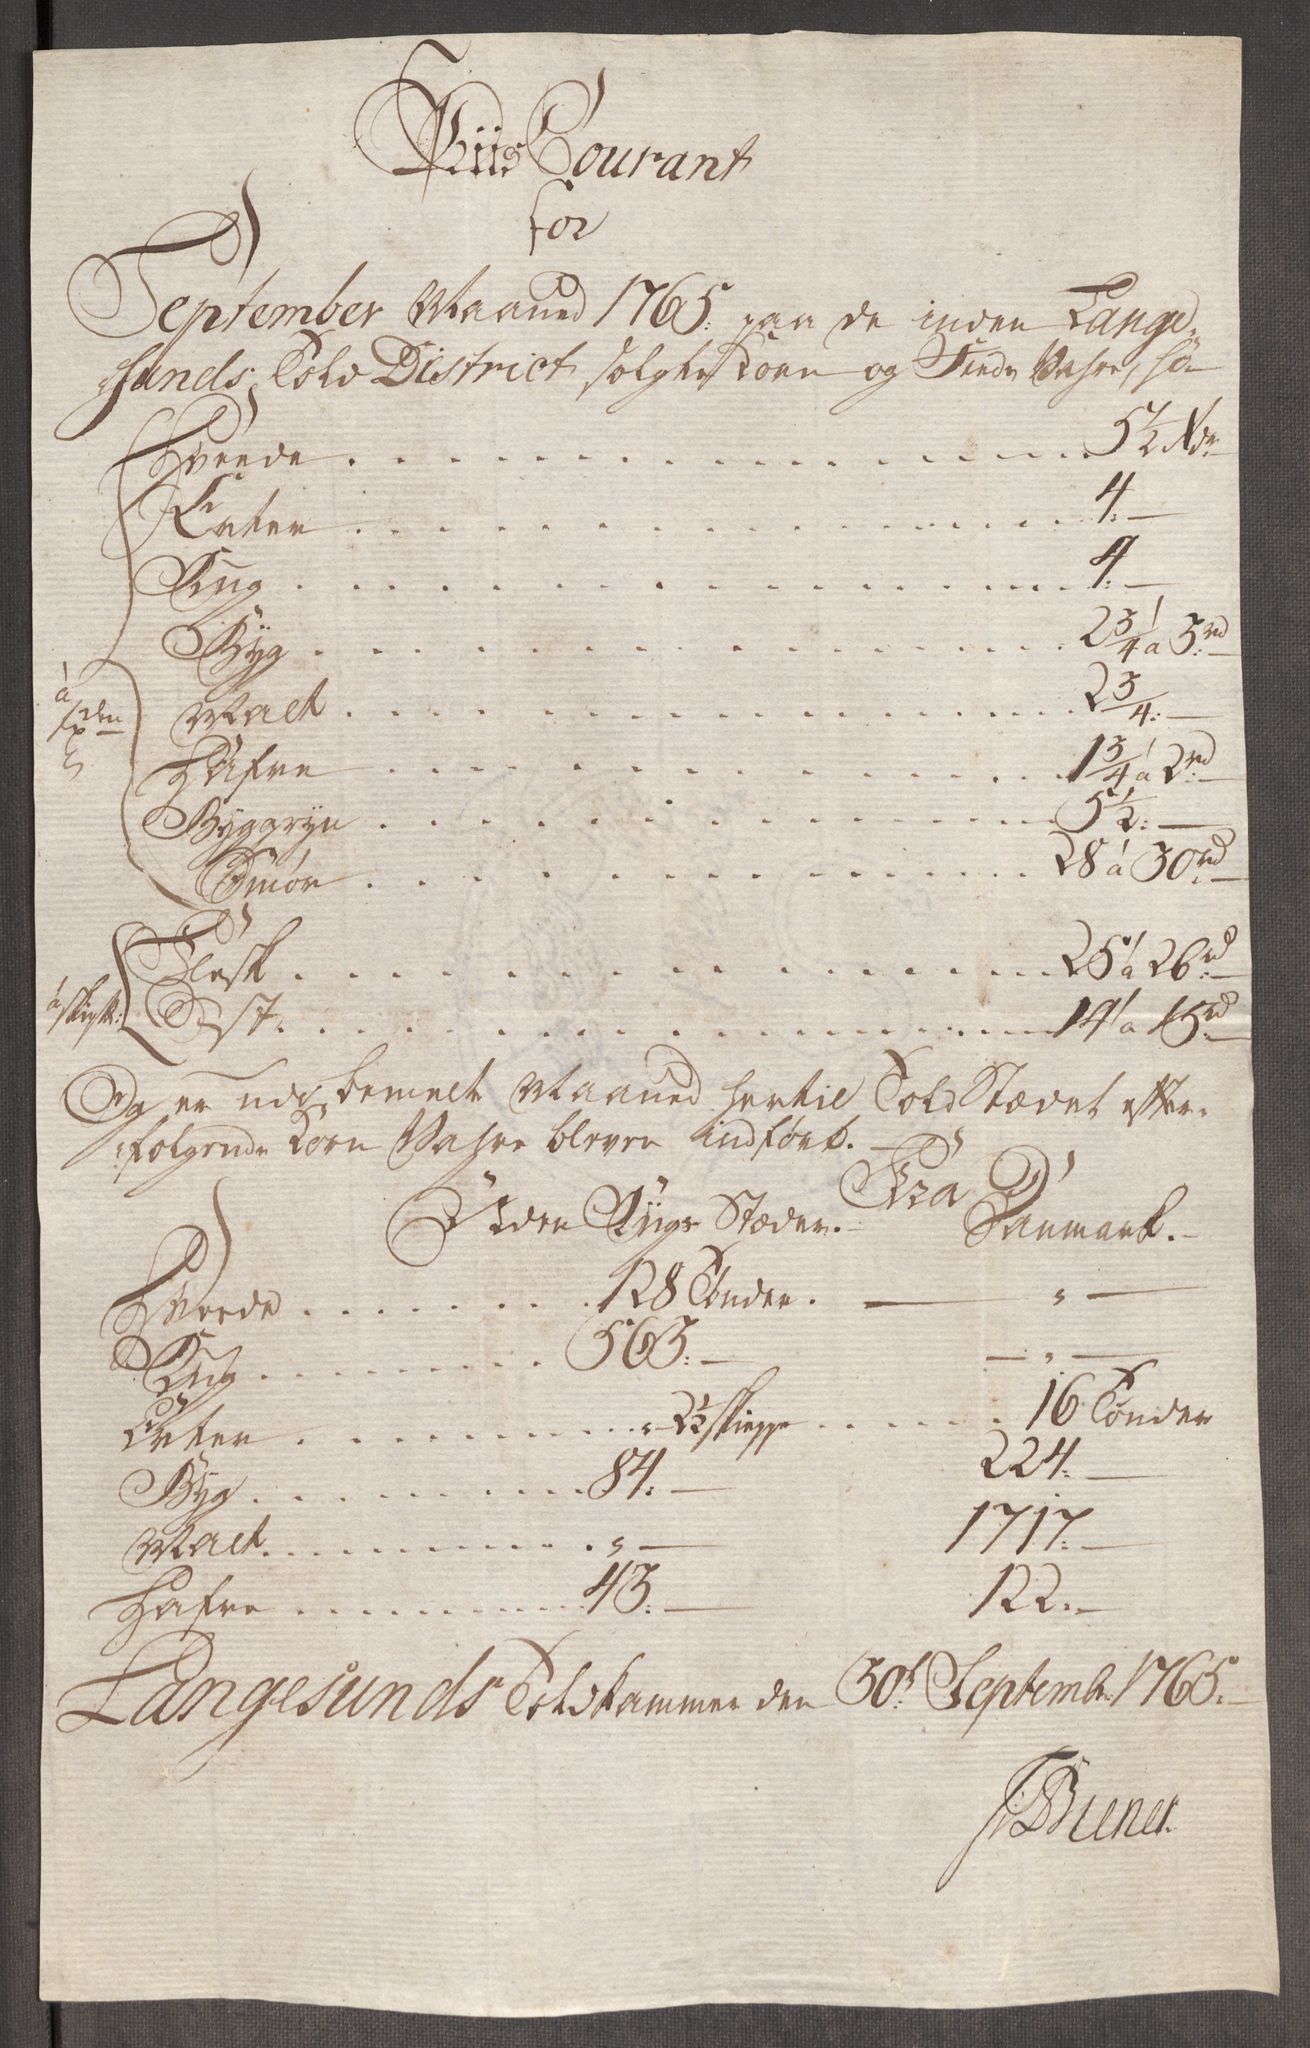 Priis Courant
for
September Maaned 1765. paa de inden Lange-
sunds Told District solgte Korn og Fede Vahre, so
Hvede . . . 5 1/2 Rdr
Erter . . . 4.—
Rug . . . 4.—
Byg . . . 2 3/4 á 3 rd
á Tden
Malt . . . 2 3/4.—
Hafre . . . 1 3/4 á 2 rd
Byggryn . . . 5 1/2.—
Smør . . . 28 á 30 rd
Flesk . . . 25 á 26 rd
á Skp
Ost . . . 14 á 15 rd
Og er udi bemelte Maaned hertil Told Stædet effter-
følgende Korn Vahre bleven indført.—
Fra
Uden Riigs Stæder.— Danmark.—
Hvede . . . 128 Tønder. — " —
Rug . . . 563.— — " —
Erter . . . " 2 1/2 Skieppe . . . 16 Tønder
Byg . . . 84.— 224.—
Malt . . . " — 1717.—
Hafre . . . 43.— 122.—
Langesunds Toldkammer den 30t Septembr 1765.—